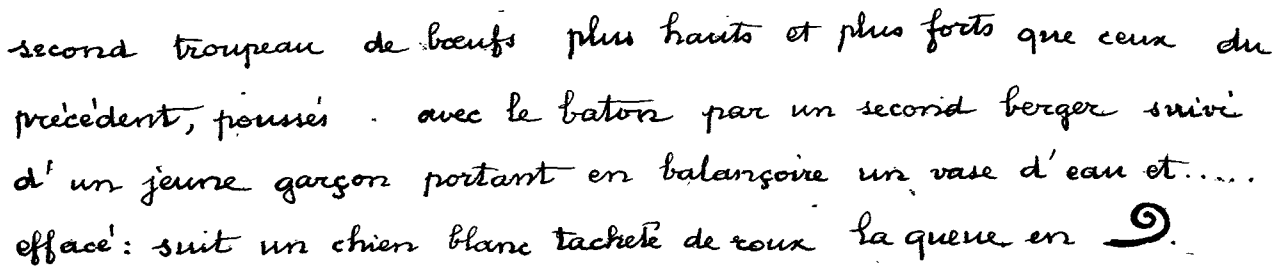 second troupeau de bœufs plus hauts et plus forts que ceux du
précédent, poussés avec le baton par un second berger suivi
d'un jeune garçon portant en balançoire un vase d'eau et.....
effacé: suit un chien blanc tacheté de roux la queue en